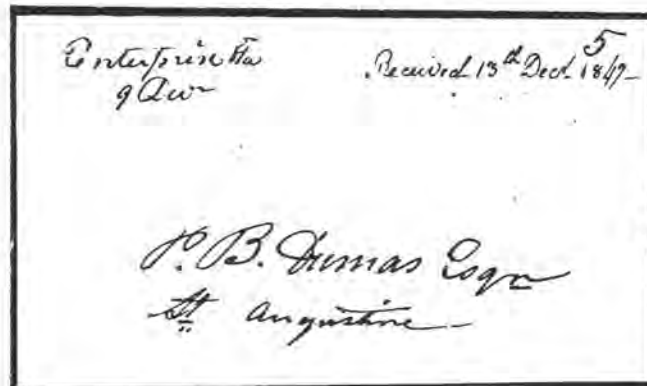 Enterprise Fla
9 Dec
5
Received 13th Decr 1847
P. B. Dumas Esqr
St Augustine